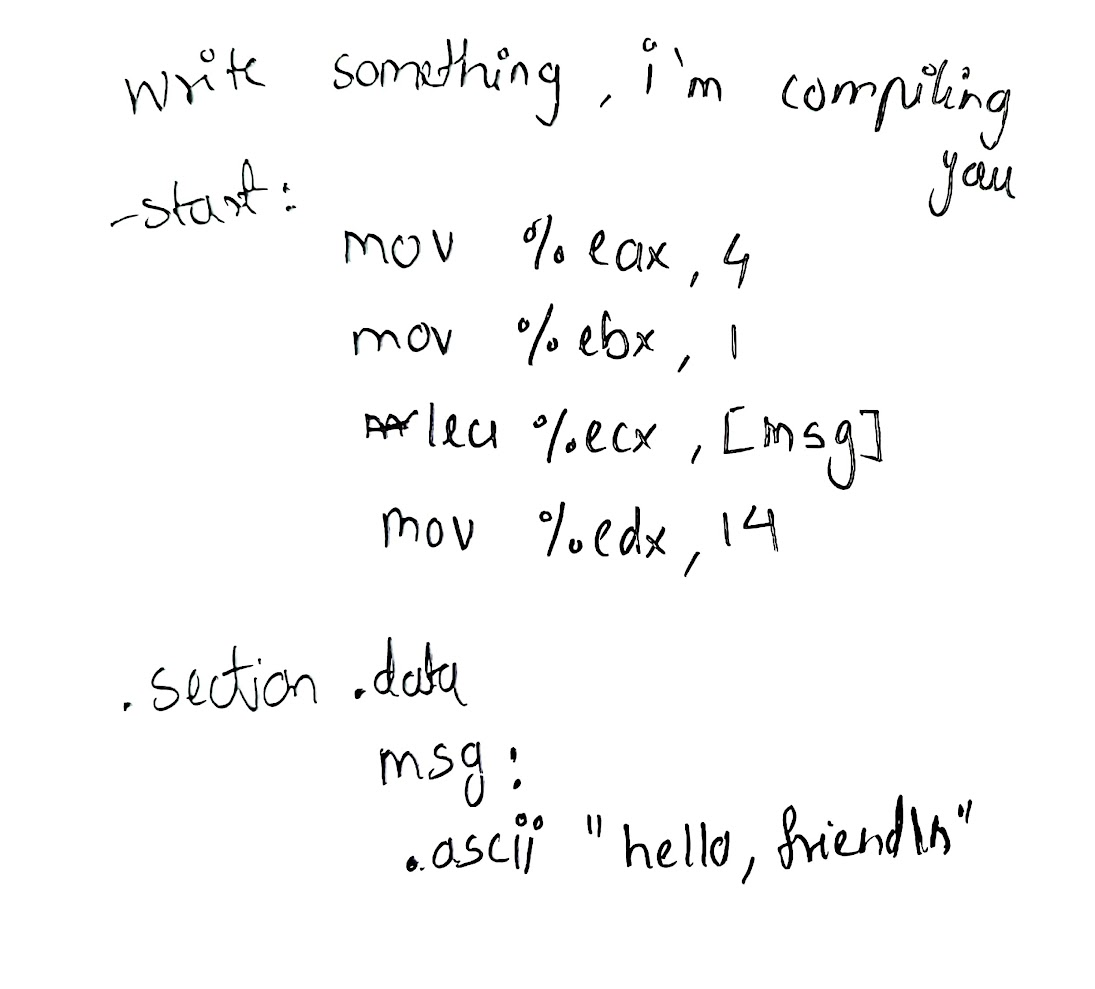 write something, i'm compiling
you
_start:
mov %eax, 4
mov %ebx, 1
lea %ecx, [msg]
mov %edx, 14
.section .data
msg:
.ascii "hello, friend\n"